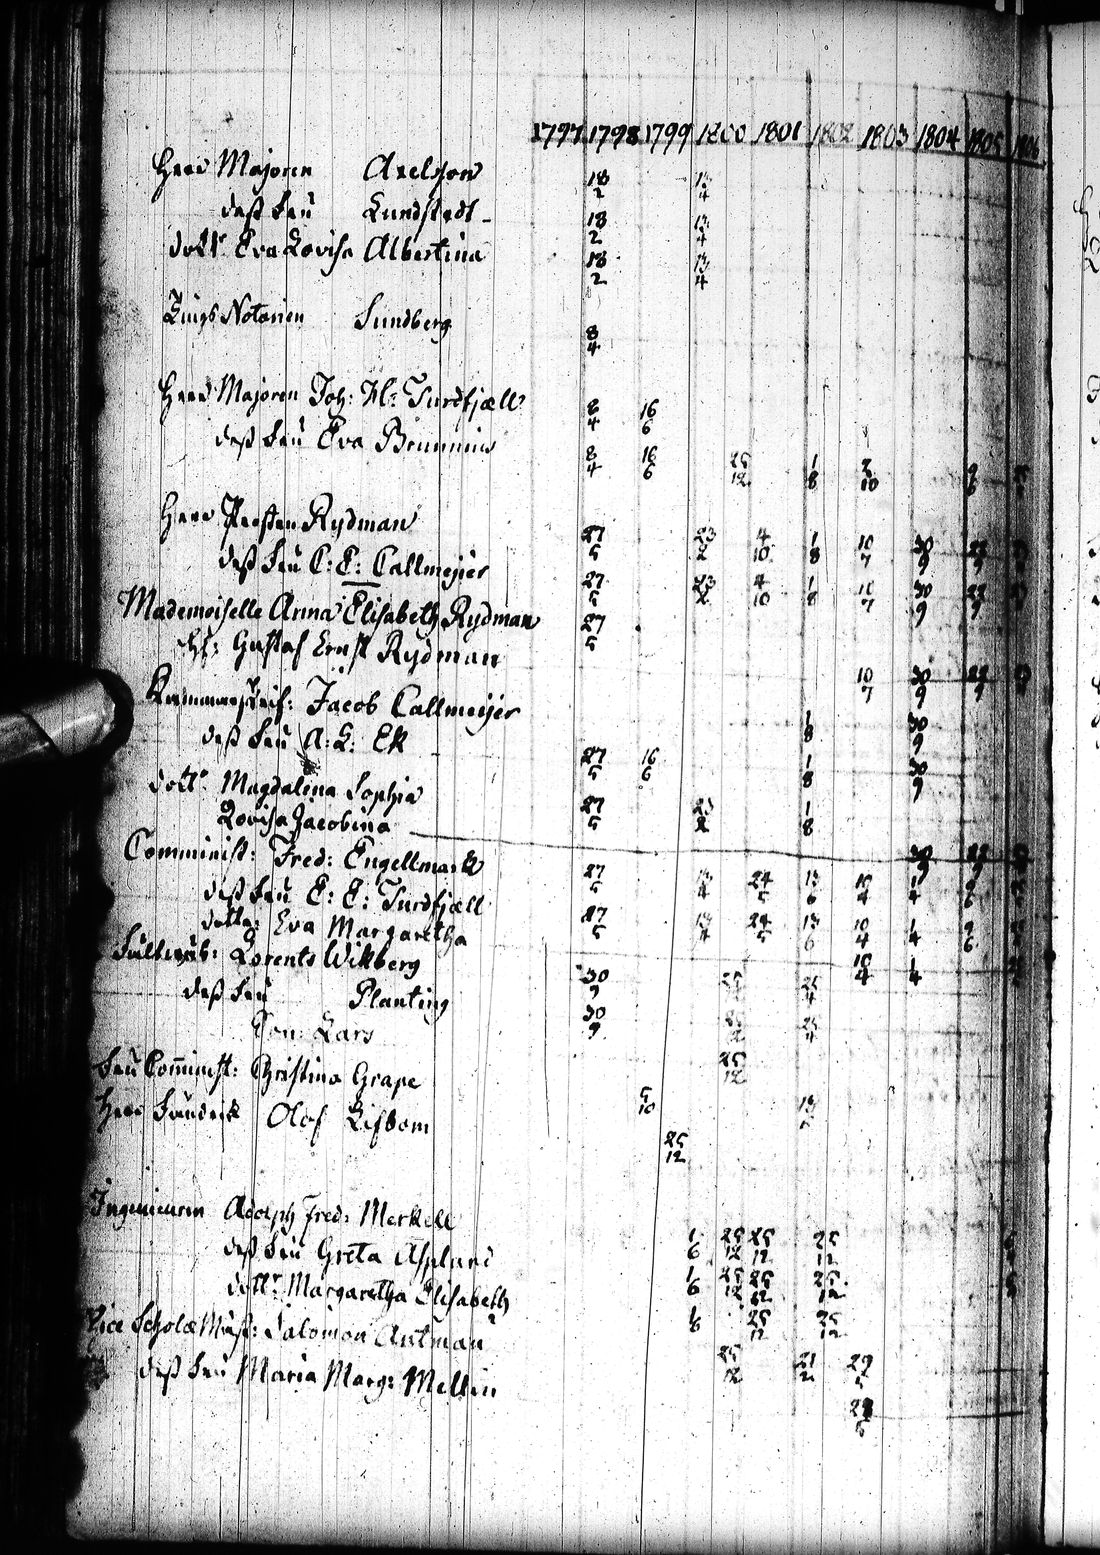 1797 1798 1799 1800 1801 1802 1803 1804 1805 1806
Herr Majoren Axelson 18/2 13/4
deß Fru Lundstedt 18/2 13/4
dottr Eva Lovisa Albertina 18/2 13/4
Notarien Sundberg 8/4
Herr Majoren Joh: Hr Turdfjæll 8/4 16/6
deß Fru Eva Brunnius 8/4 16/6 25/12 1/8 2/10 9/6
Herr Prosten Rydman 27/5 23/2 4/10 1/8 10/7 30/9 22/9
deß Fru C: E: Callmeijer 27/5 23/2 4/10 1/8 10/7 30/9 22/9
Mademoiselle Anna Elisabeth Rydman 27/5
Gustaf Ernst Rydman 10/7 30/9 22/9
Jacob Callmeijer 1/8 30/9
deß Fru A: L: Ek 27/5 16/6 1/8 30/9
dottr Magdalina Sophia 27/5 23/2 1/8
Lovisa Jacobina 30/9 22/9
Comminist: Fred: Engellmark 27/5 13/4 24/5 13/6 10/4 1/4 9/6
deß Fru E: E: Turdfjæll 27/5 13/4 24/5 13/6 10/4 1/4 9/6
dottr: Eva Margaretha 10/4 1/4
Lorents Wikberg 30/9 25/12 25/4
deß Fru Planting 30/9 25/12 25/4
Son Lars 25/12
Fru Com̄inist: Christina Grape 5/10 13
Herr Olof Lifbom 25/12
Ingenieuren Adolph Fred: Merkell 1/6 25/12 25/12 25/12
deß Fru Greta Asplund 1/6 25/12 25/12 25/12
dottr Margaretha Elisabeth 1/6 25/12 25/12
Vice Scholæ Mäst: Salomon Antman 25/12 21/2 29/5
deß Fru Maria Marg: Mellin 29/5